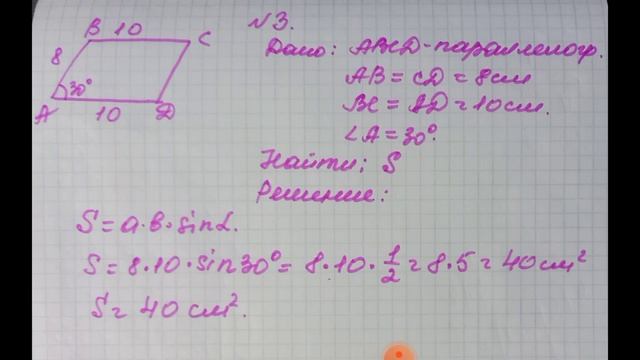 N3.
B 10 C
8
30°
A 10 D
Дано: ABCD-параллелогр.
AB = CD = 8см
BC = AD = 10см.
∠A = 30°.
Найти: S
Решение:
S = a·b·sinα.
S = 8·10·sin30° = 8·10·1/2 = 8·5 = 40см²
S = 40см².